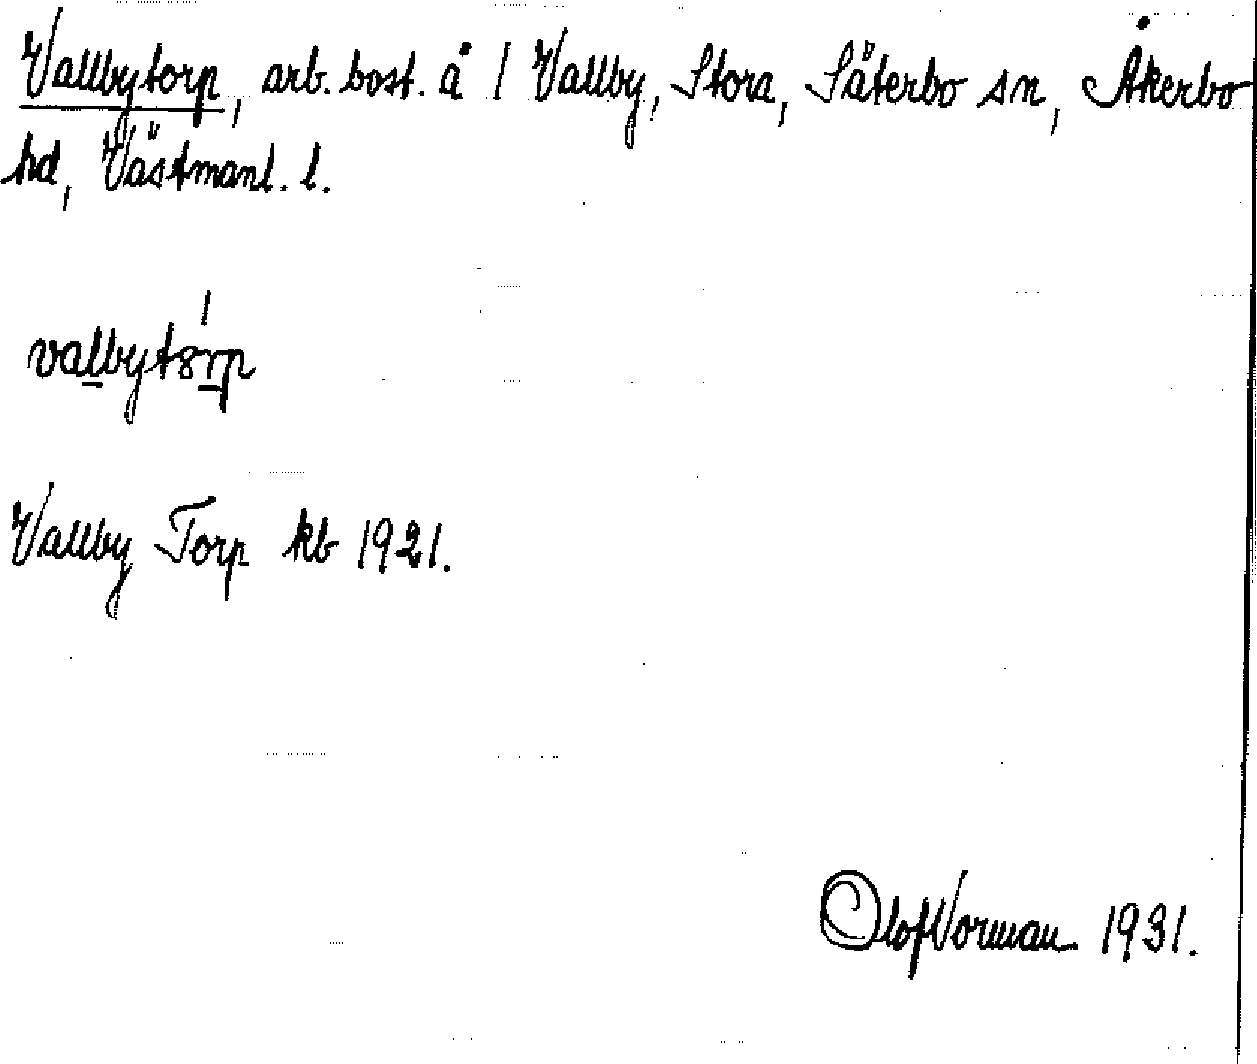 Vallbytorp, arb. bost. å 1 Vallby, Stora, Säterbo sn, Åkerbo
hd, Västmanl. l.
valbytórp
Vallby Torp kb 1921.
Olof Vorman 1931.